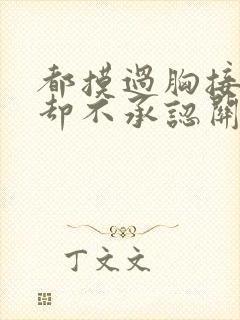 都摸過胸接
却不承認關
丁文文